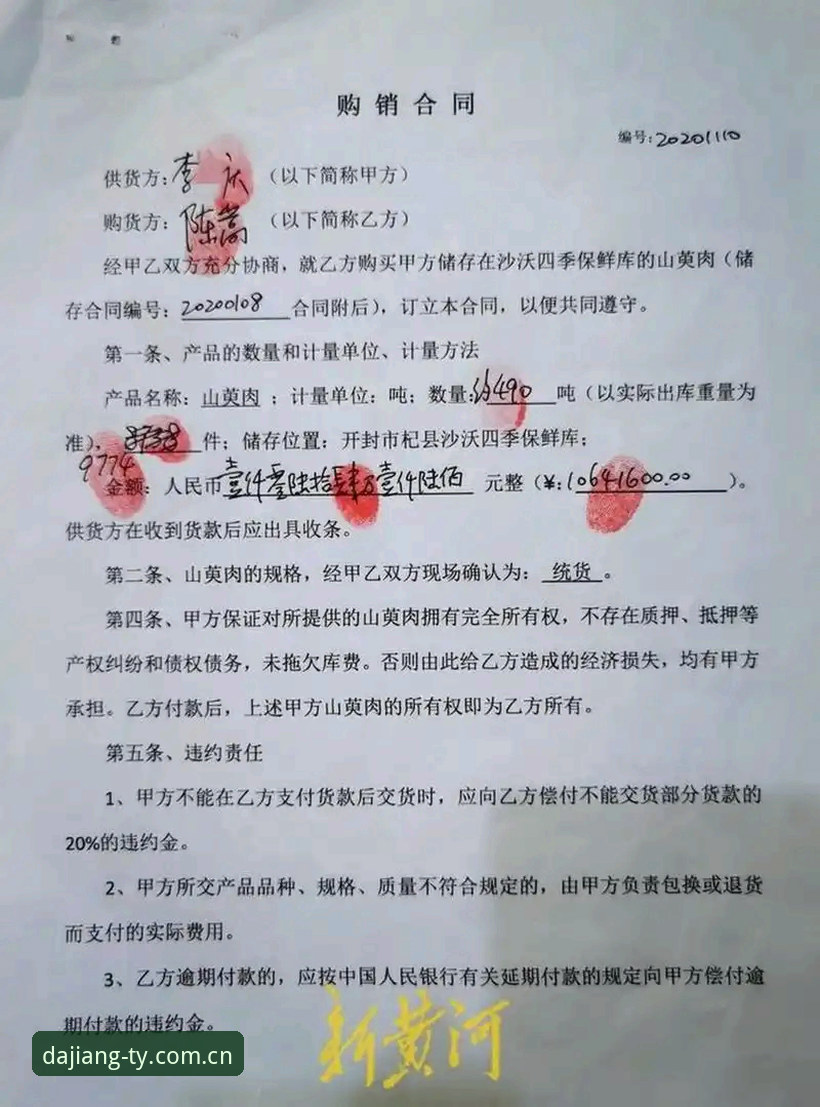 购销合同
编号:20201110
供货方:李 庆 （以下简称甲方）
购货方:陈嵩 （以下简称乙方）
经甲乙双方充分协商，就乙方购买甲方储存在沙沃四季保鲜库的山萸肉（储
存合同编号：20200108 合同附后），订立本合同，以便共同遵守。
第一条、产品的数量和计量单位、计量方法
产品名称：山萸肉 ；计量单位：吨；数量:约490 吨（以实际出库重量为
准），件；储存位置：开封市杞县沙沃四季保鲜库；
9774
金额：人民币壹仟零陆拾肆万壹仟陆佰 元整（¥:10641600.00 ）。
供货方在收到货款后应出具收条。
第二条、山萸肉的规格，经甲乙双方现场确认为： 统货 。
第四条、甲方保证对所提供的山萸肉拥有完全所有权，不存在质押、抵押等
产权纠纷和债权债务，未拖欠库费。否则由此给乙方造成的经济损失，均有甲方
承担。乙方付款后，上述甲方山萸肉的所有权即为乙方所有。
第五条、违约责任
1、甲方不能在乙方支付货款后交货时，应向乙方偿付不能交货部分货款的
20%的违约金。
2、甲方所交产品品种、规格、质量不符合规定的，由甲方负责包换或退货
而支付的实际费用。
3、乙方逾期付款的，应按中国人民银行有关延期付款的规定向甲方偿付逾
期付款的违约金。
新黄河
dajiang-ty.com.cn